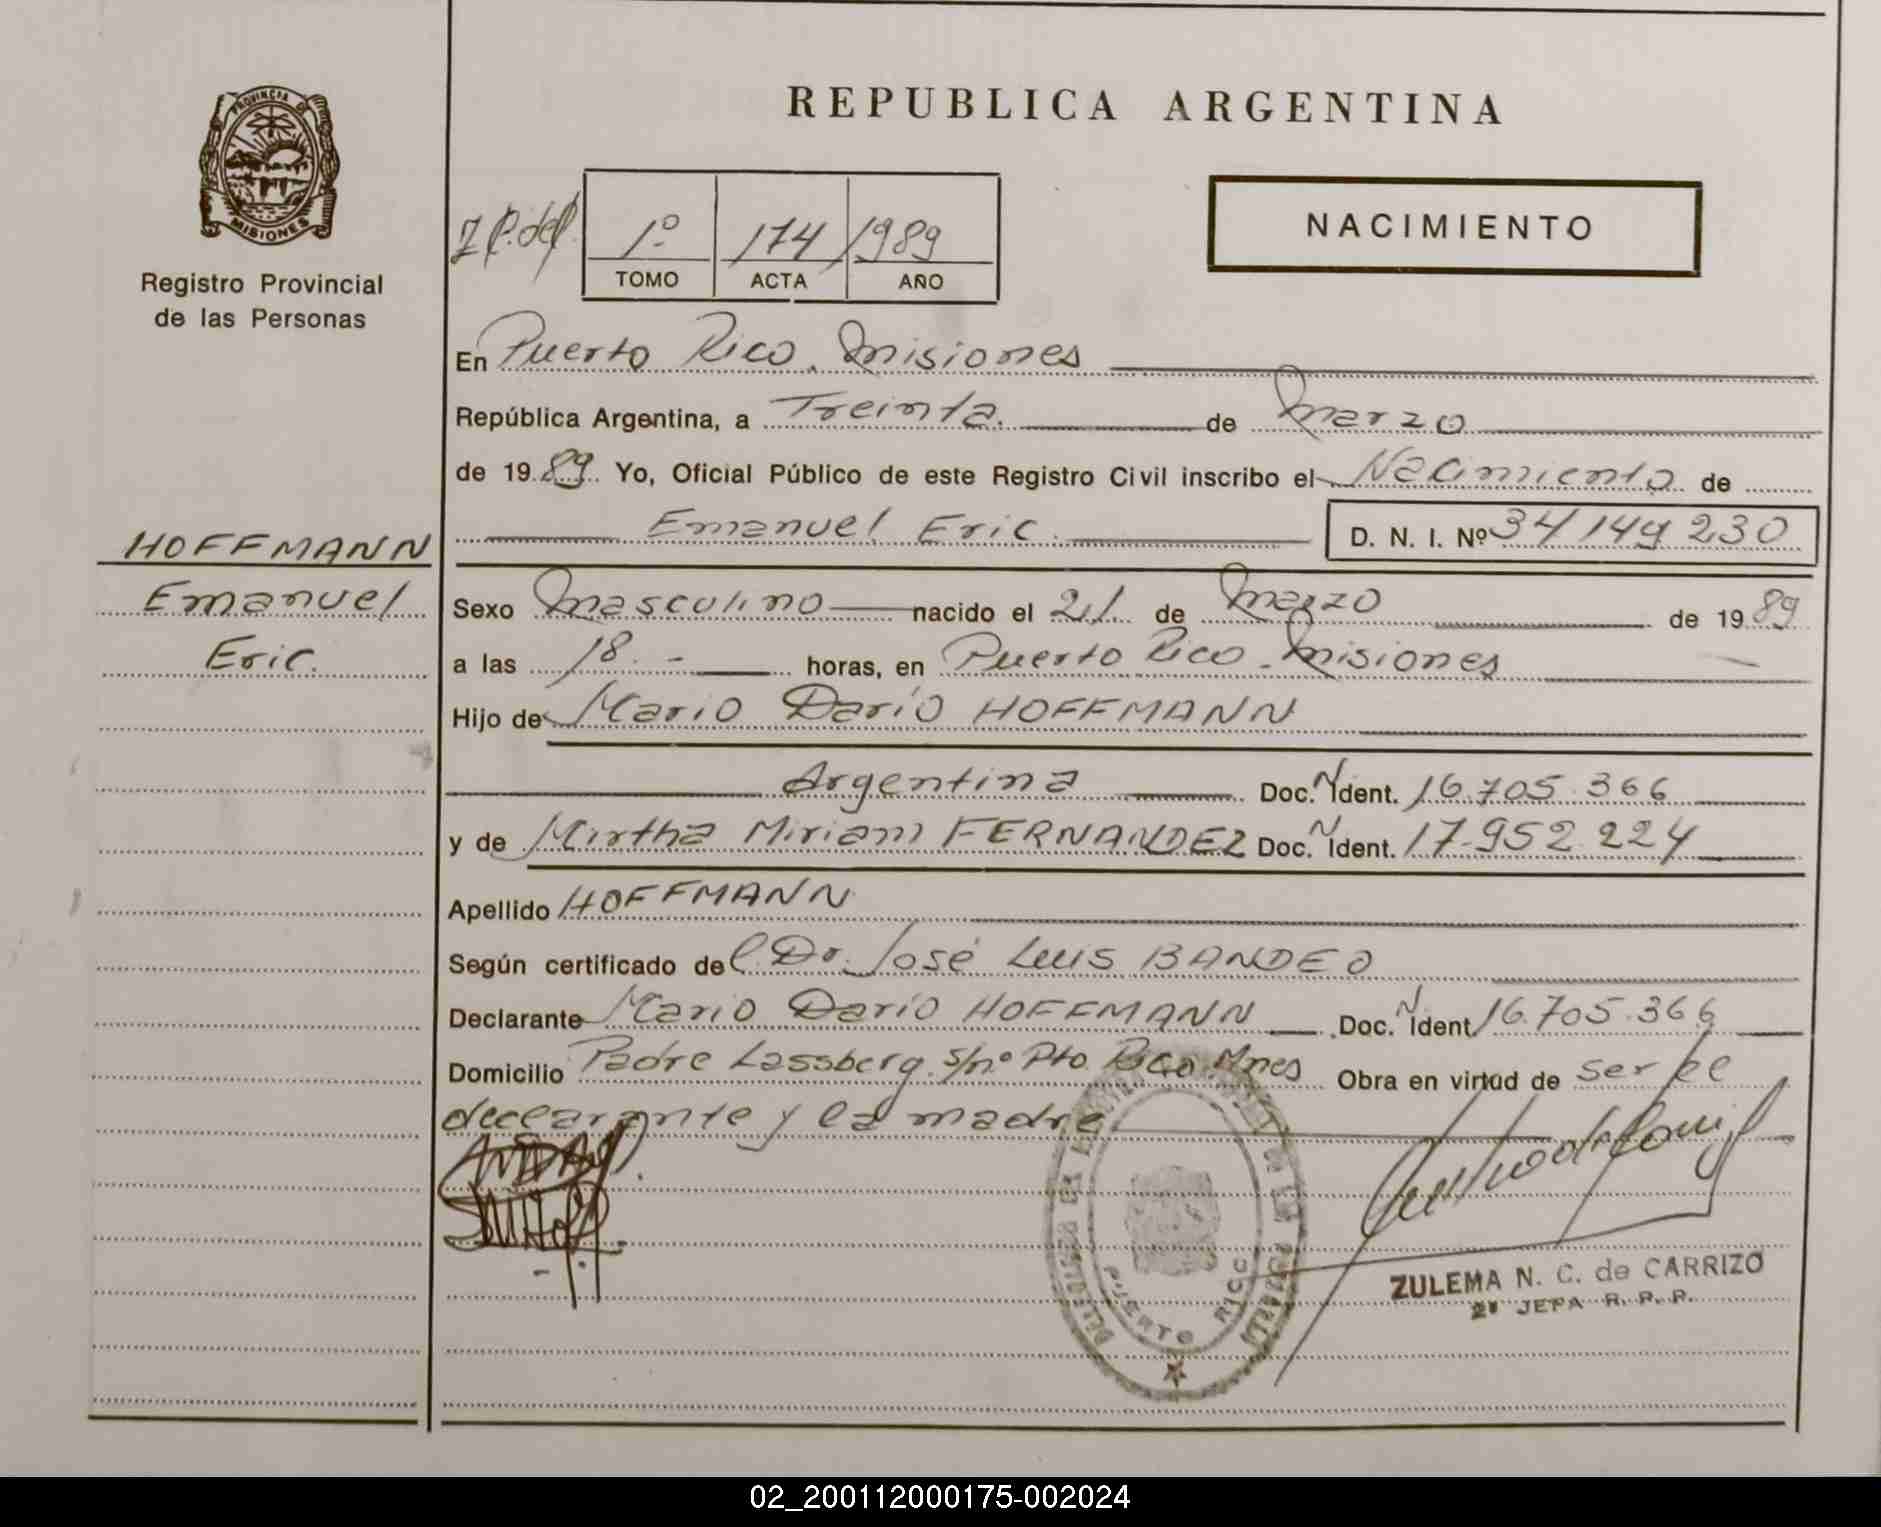 REPUBLICA ARGENTINA
PROVINCIA DE
MISIONES
Registro Provincial
de las Personas
1º 174 1989
TOMO ACTA AÑO
NACIMIENTO
En Puerto Rico. Misiones
República Argentina, a Treinta. de Marzo
de 1989. Yo, Oficial Público de este Registro Civil inscribo el Nacimiento de
Emanuel Eric. D. N. I. Nº 34149230
HOFFMANN
Emanuel
Eric.
Sexo Masculino nacido el 21 de Marzo de 1989
a las 18.- horas, en Puerto Rico. Misiones
Hijo de Mario Darío HOFFMANN
Argentina Doc. N Ident. 16.705.366
y de Mirtha Miriam FERNANDEZ Doc. N Ident. 17.952.224
Apellido HOFFMANN
Según certificado del Dr. José Luis BANDEO
Declarante Mario Darío HOFFMANN Doc. N Ident 16.705.366
Domicilio Padre Lassberg. s/nº Pto. Rico. Mnes Obra en virtud de ser el
declarante y la madre.
PUERTO RICO
ZULEMA N. C. de CARRIZO
2º JEFA R. P. P.
02_200112000175-002024